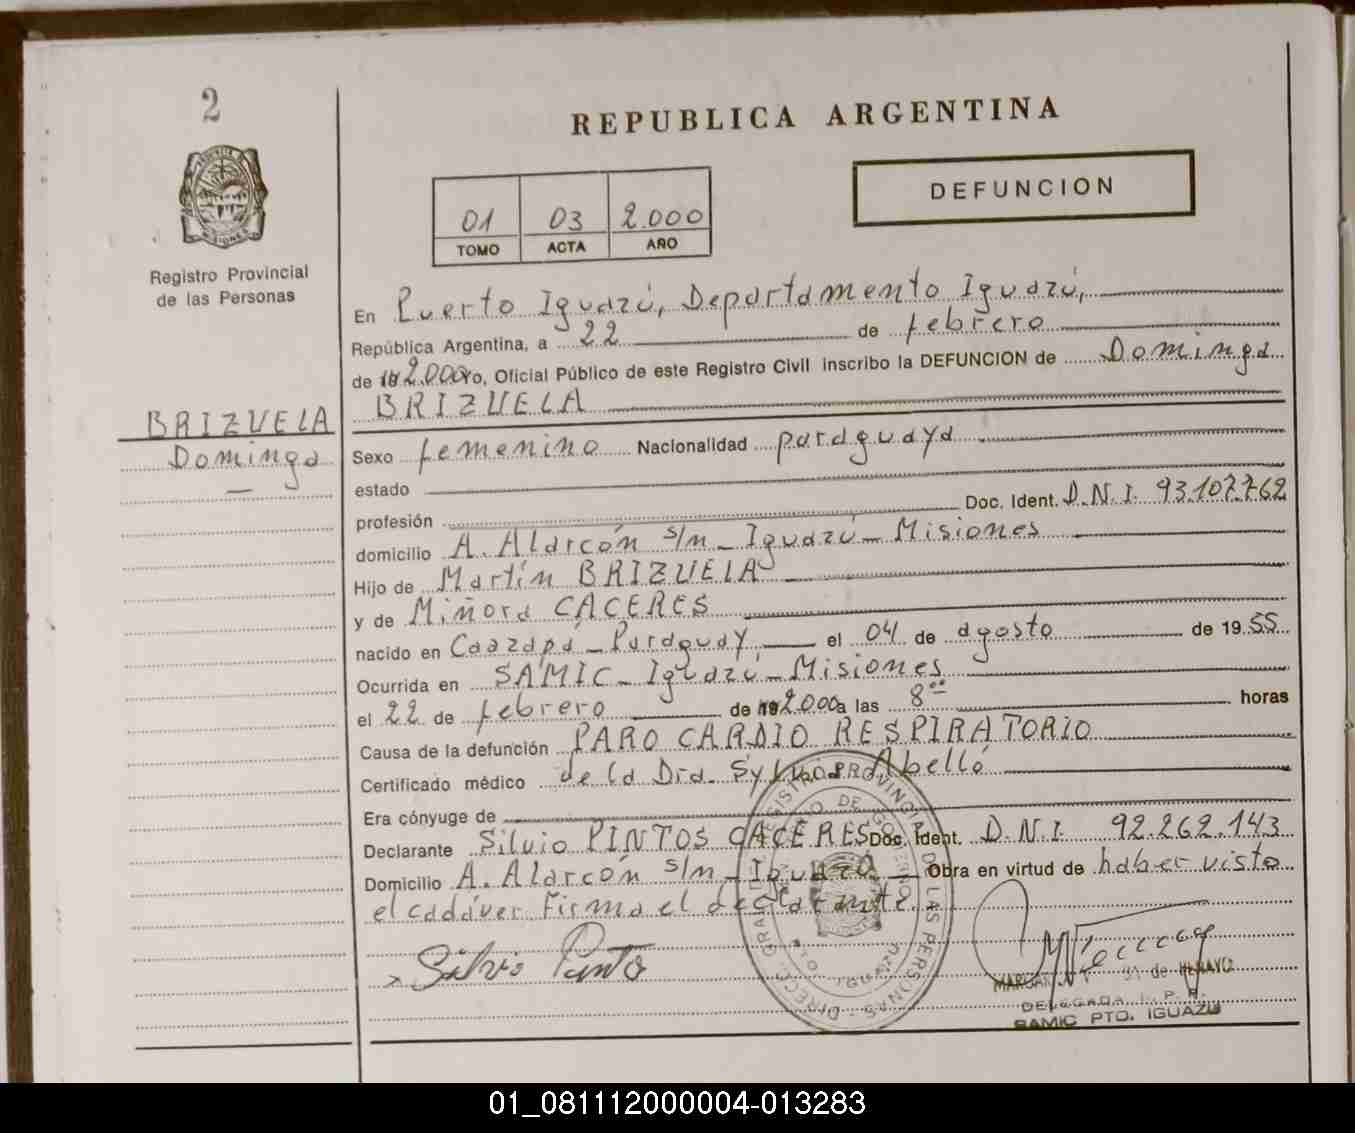 2
REPUBLICA ARGENTINA
DEFUNCION
01 03 2.000
TOMO ACTA AÑO
Registro Provincial
de las Personas
En Puerto Iguazú, Departamento Iguazú,
República Argentina, a 22 de febrero
de 2.000 yo, Oficial Público de este Registro Civil inscribo la DEFUNCION de Dominga
BRIZUELA
BRIZUELA
Dominga
Sexo femenino Nacionalidad paraguaya
estado
profesión Doc. Ident. D.N.I. 93.107.762
domicilio A. Alarcón s/n - Iguazú - Misiones
Hijo de Martín BRIZUELA
y de Miñora CACERES
nacido en Caazapá - Paraguay el 04 de agosto de 1955
Ocurrida en SAMIC - Iguazú - Misiones
el 22 de febrero de 2000 a las 8°° horas
Causa de la defunción PARO CARDIO RESPIRATORIO
Certificado médico de la Dra. Sylvia Abelló
Era cónyuge de
Declarante Silvio PINTOS CACERES Doc. Ident. D.N.I. 92.262.143
Domicilio A. Alarcón s/n - Iguazú Obra en virtud de haber visto
el cadáver. Firma el declarante.
x Silvio Pinto
DIREC. GRAL. REGISTRO PROVINCIAL DE LAS PERSONAS
IGUAZU
DELEGADA
SAMIC PTO. IGUAZU
01_081112000004-013283